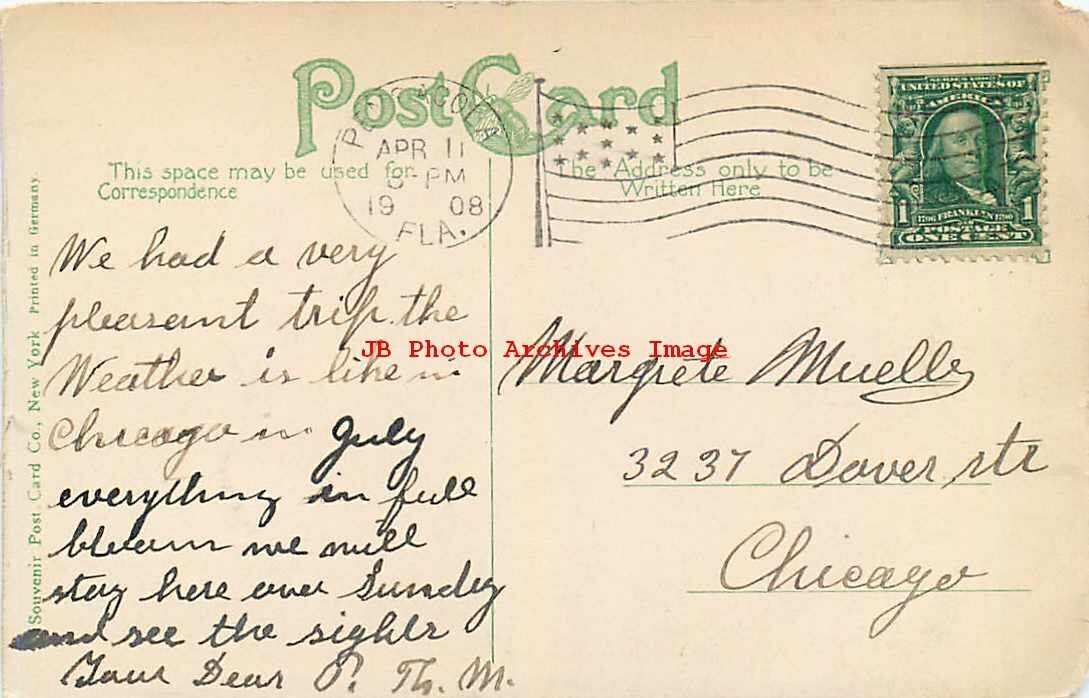 Post Card
PENSACOLA
APR 11
PM
19 08
FLA.
This space may be used for
Correspondence
The Address only to be
Written Here
SERIES 1902
UNITED STATES OF
AMERICA
1 1706 FRANKLIN 1790 1
POSTAGE
ONE CENT
Souvenir Post Card Co., New York Printed in Germany.
We had a very
pleasant trip. the
Weather is like in
Chicago in July
everything in full
bloom we will
stay here over Sunday
and see the sights
Your Dear P. Th. M.
JB Photo Archives Image
Margrete Mueller
3237 Dover str
Chicago